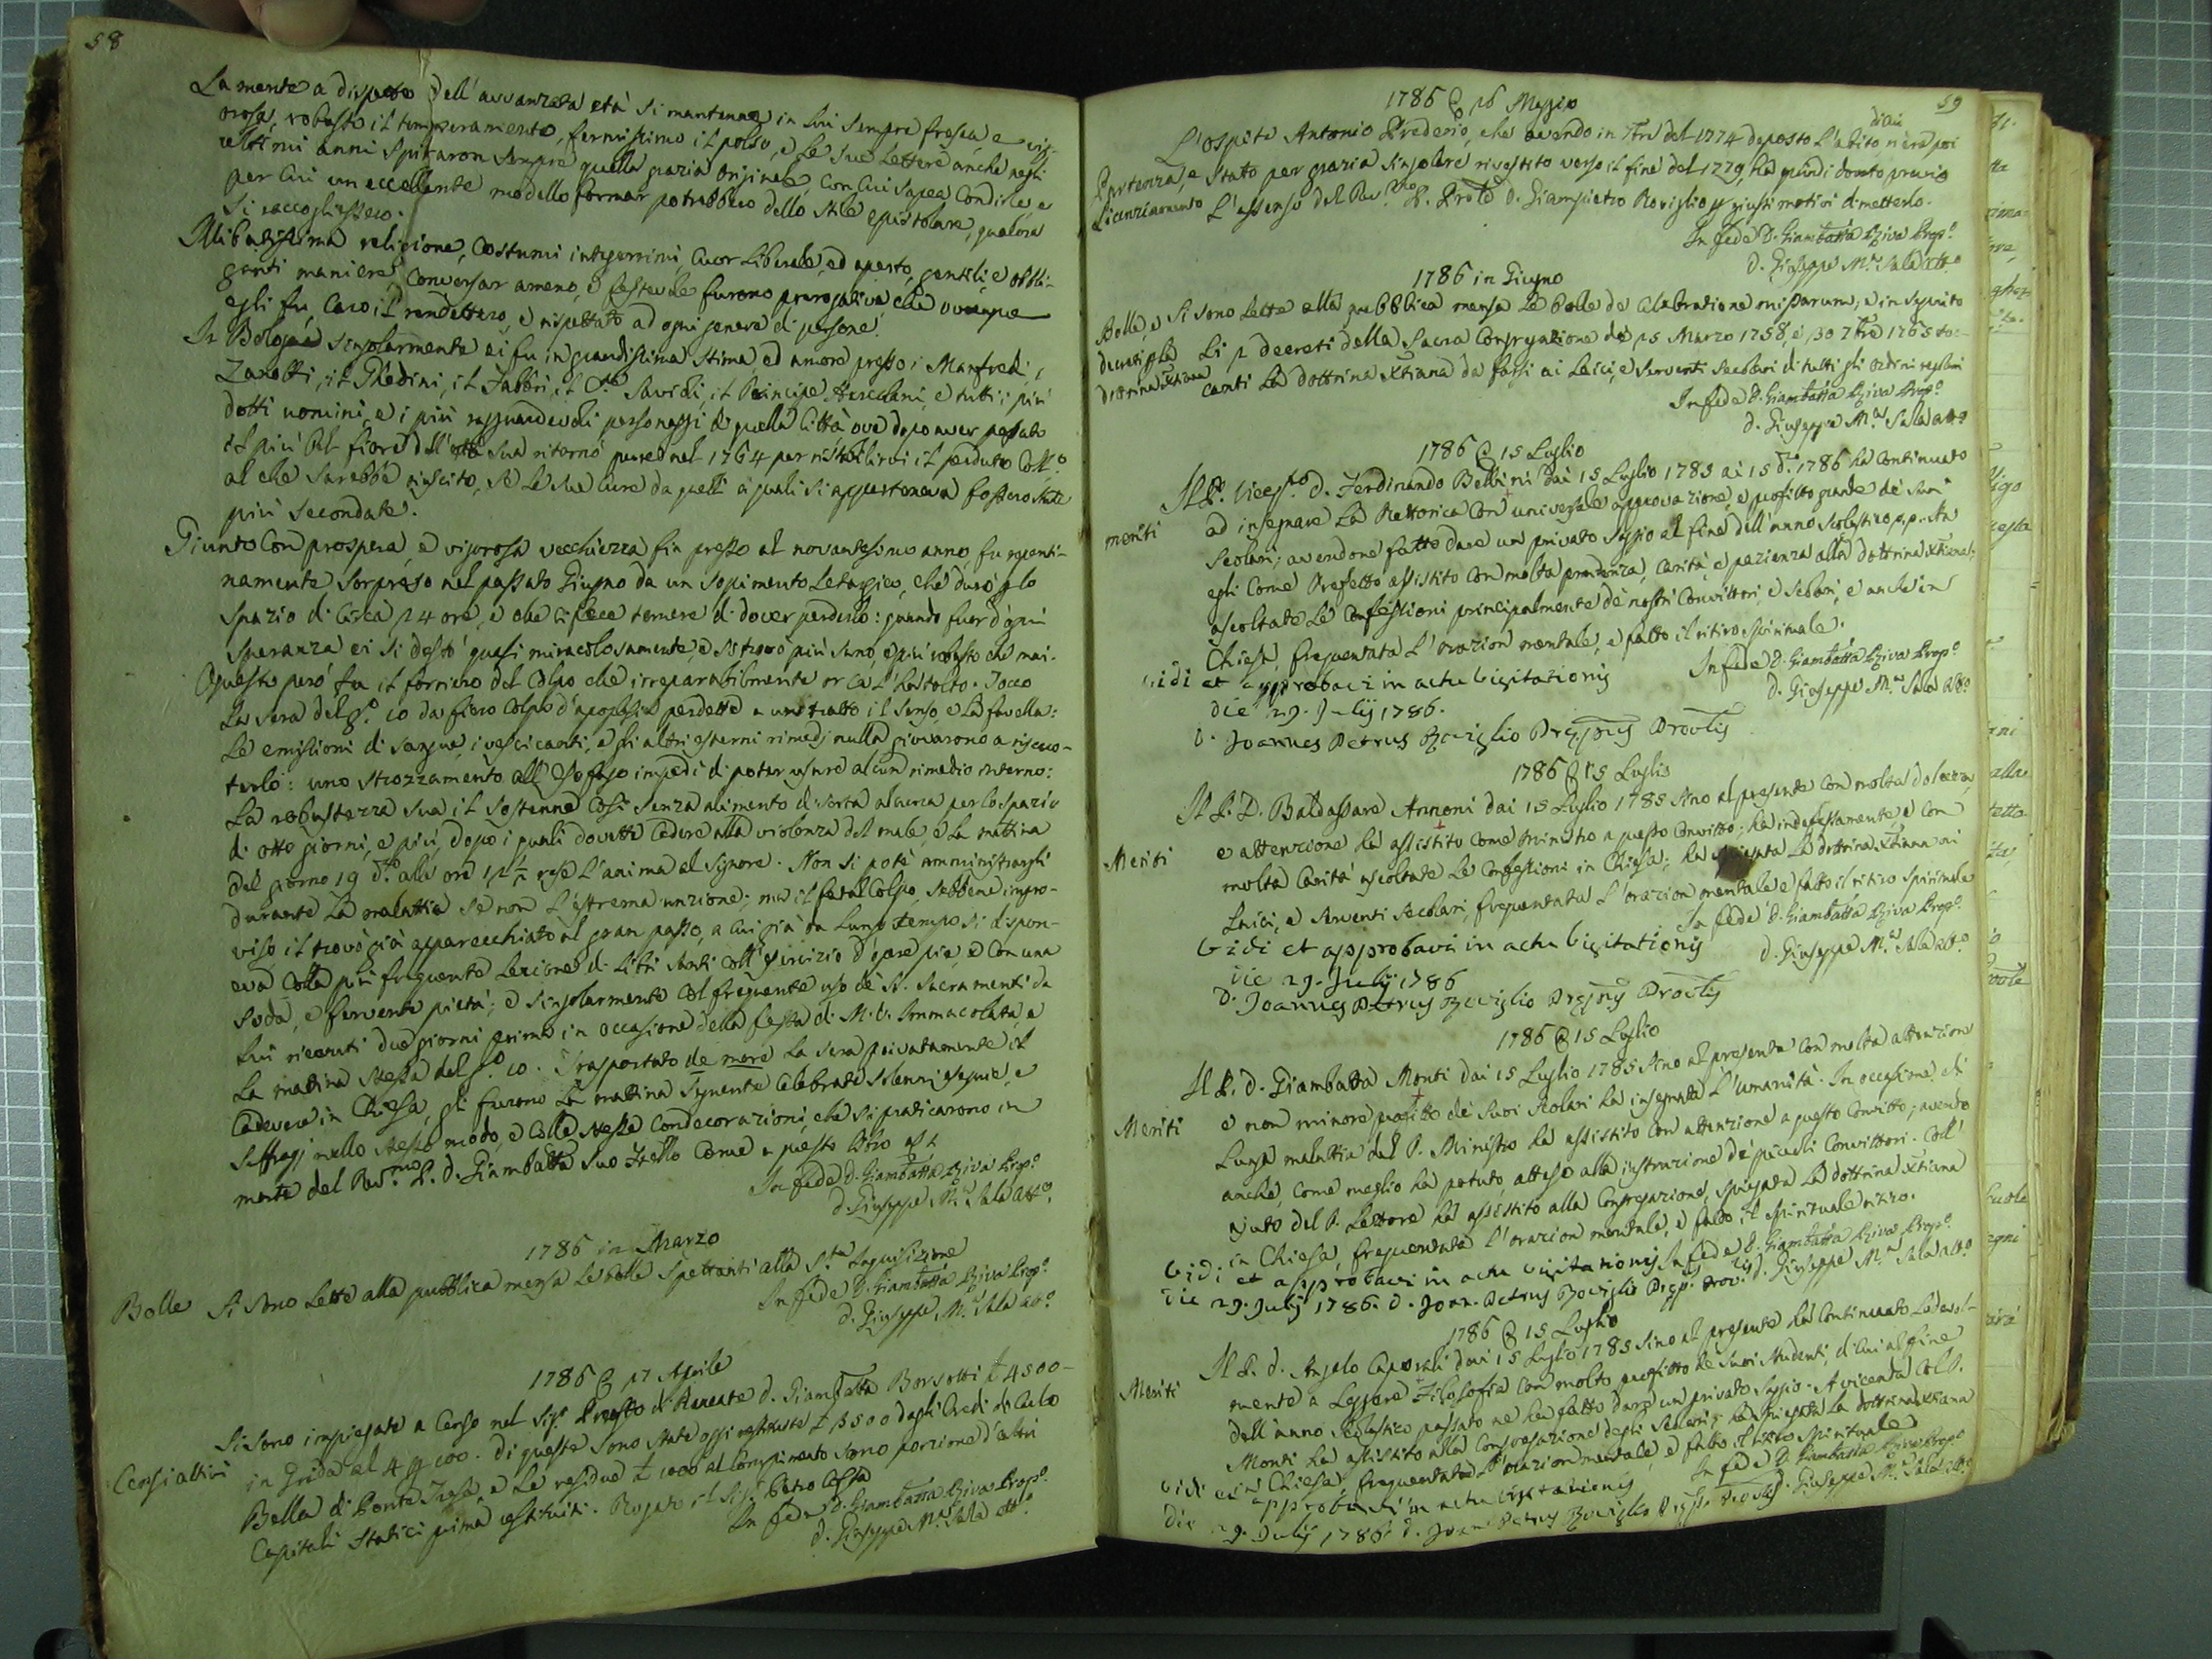 58
La mente a dispetto dell'avvanzata età si mantenne in lui sempre fresca, e vig-
orosa, robusto il temperamento, fermissimo il polso, e le sue lettere anche negli
ultimi anni spiraron sempre quella grazia originale, con cui sapea condirle, e
per cui un eccellente modello formar potrebbero dello stile epistolare, qualora
si raccogliessero.
Illibatissima religione, costumi integerrimi, cuor liberale, ed aperto, gentili, e obbli-
ganti maniere, conversar ameno, e festevole furono prerogative, che ovunque
egli fu, caro il rendettero, e rispettato ad ogni genere di persone.
In Bologna singolarmente ei fu in grandissima stima, ed amore presso i Manfredi, i
Zanotti, il Ghedini, il Fabbri, il Savioli, il Principe Hercolani, e tutti i più
dotti uomini, e i più ragguardevoli personaggi di quella Città ove dopo aver passato
il più bel fiore dell'età sua ritornò pure nel 1764 per ristabilirvi il perduto Coll.o
al che sarebbe riuscito, se le sue cure da quelli a quali si apparteneva fossero state
più secondate.
Giunto con prospera, e vigorosa vecchiezza fin presso al novantesimo anno fu repenti-
namente sorpreso nel passato Giugno da un sopimento letargico, che durò p lo
spazio di circa 24 ore, e che ci fece temere di dover perderlo: quando fuor d'ogni
speranza ei si destò quasi miracolosamente, e si trovò più sano, e più robusto che mai.
Questo però fu il foriero del colpo che irreparabilmente or ce l'ha tolto. Tocco
la sera del g.o 10 da fiero colpo d'apoplesia perdette a un tratto il senso, e la favella:
le emissioni di sangue, i vescicanti, e gli altri esterni rimedj nulla giovarono a riscuo-
terlo: uno strozzamento all'Esofago impedì di poter usare alcun rimedio interno:
la robustezza sua il sostenne così senza alimento di sorta alcuna per lo spazio
di otto giorni, e più, dopo i quali dovette cedere alla violenza del male, e la mattina
del giorno 19 d.o alle ore 12 1/2 rese l'anima al Signore. Non si potè amministrargli
durante la malattia se non l'estrema unzione; ma il fatal colpo, sebbene impro-
viso il trovò già apparecchiato al gran passo, a cui già da lungo tempo si dispon-
eva colla più frequente lezione di libri santi coll'esercizio d'opere pie, e con una
soda, e fervente pietà; e singolarmente col frequente uso de' SS. Sacramenti da
lui ricevuti due giorni prima in occasione della festa di M. V. Immacolata, e
la mattina stessa del g.o 10. Trasportato de more la sera privatamente il
Cadavere in Chiesa, gli furono la mattina seguente celebrate solenni esequie, e
suffragj nello stesso modo, e colle stesse condecorazioni, che si praticarono in
morte del Rev.mo P. d. Giambatta suo frello come a questo libro
In fede D. Giambatta Riva Prop.o
d. Giuseppe M.a Sala Att.o
1786 in Marzo
Bolle Si sono lette alla pubblica mensa le bolle spettanti alla S.ta Inquisizione
In fede D. Giambatta Riva Prop.o
d. Giuseppe M.a Sala att.o
1786 @ 17 Aprile
Censi attivi Si sono impiegate a Censo nel Sig.r d. Giambatta Borsotti £ 4500-
in Grida al 4 p 100. Di queste sono state oggi restituite £ 3500 dagli Eredi di Carlo
Bella di Ponte Tresa, e le residue £ 1000 al compimento sono porzione d'altri
Capitali statici prima restituiti. Rogato il Sig.r Pietro Cossa
In fede D. Giambatta Riva Prop.o
d. Giuseppe M.a Sala att.o
59
1786 @ 26 Maggio
di Ch.
L'ospite Antonio che avendo in 7bre del 1774 deposto l'abito n'era poi
Partenza, e stato per grazia singolare rivestito verso il fine del 1779, ha quindi dovuto previo
Licenziamento l'assenso del Rev.mo P. Prole D. Giampietro Roviglio p giusti motivi dimetterlo.
In fede D. Giambatta Riva Prop.o
d. Giuseppe M.a Sala att.o
1786 in Giugno
Bolle, e Si sono lette alla pubblica mensa le bolle de celebratione missarum, e in seguito
decreti p la li 2 decreti della Sacra Congregazione de' 15 Marzo 1758, e 30 7bre 1765 toc-
dottrina Xtiana canti la dottrina Xtiana da farsi ai laici, e serventi secolari di tutti gli ordini regolari
In fede D. Giambatta Riva Prop.o
d. Giuseppe M.a Sala att.o
1786 @ 15 Luglio
Il P. Vicep.to d. Ferdinando Bellini dai 15 Luglio 1785 ai 15 d.o 1786 ha continuato
meriti ad insegnare la Rettorica con universale approvazione, e profitto grande de' suoi
scolari; avendone fatto dare un privato saggio al fine dell'anno scolastico p.p. Ha
egli come Prefetto assistito con molta prudenza, carità, e pazienza alla dottrina Xtiana;
ascoltate le confessioni principalmente de' nostri Convittori, e scolari, e anche in
Chiesa, frequentata l'orazion mentale, e fatto il ritiro spirituale.
In fede D. Giambatta Riva Prop.o
Vidi et approbavi in actu Visitationis
d. Giuseppe M.a Sala att.o
die 29. Julij 1786.
D. Joannes Petrus Roviglio Præpus Provlis
1786 @ 15 Luglio
Il P. D. Baldassare Annoni dai 15 Luglio 1785 sino al presente con molta dolcezza,
Meriti e attenzione ha assistito come Ministro a questo Convitto; ha indefessamente e con
molta carità ascoltate le confessioni in Chiesa; ha spiegata la dottrina Xtiana ai
laici, e serventi secolari, frequentata l'orazion mentale e fatto il ritiro spirituale
In fede D. Giambatta Riva Prop.o
Vidi et approbavi in actu Visitationis
d. Giuseppe M.a Sala att.o
die 29. Julij 1786
D. Joannes Petrus Roviglio Præpus Provlis
1786 @ 15 Luglio
Il P. d. Giambatta Monti dai 15 Luglio 1785 sino al presente con molta attenzione
Meriti e non minore profitto de' suoi scolari ha insegnata l'umanità. In occasione di
lunga malattia del P. Ministro ha assistito con attenzione a questo Convitto; avendo
anche, come meglio ha potuto, atteso alla instruzione de' piccoli Convittori. Coll'
ajuto del P. Lettore ha assistito alla Congregazione, spiegata la dottrina Xtiana
in Chiesa, frequentata l'orazion mentale, e fatto il spirituale ritiro.
Vidi et approbavi in actu Visitationis In fede D. Giambatta Riva Prop.o
die 29. Julij 1786. D. Joan. Petrus Roviglio Præp. Prov.lis d. Giuseppe M.a Sala att.o
1786 @ 15 Luglio
Il P. d. Angelo Caporali dai 15 Luglio 1785 sino al presente ha continuato lodevol-
Meriti mente a leggere Filosofia con molto profitto de' suoi studenti, di cui al fine
dell'anno scolastico passato ne ha fatto dare un privato saggio. A vicenda col P.
Monti ha assistito alla Congregazione degli scolari; ha spiegata la dottrina Xtiana
in Chiesa, frequentata l'orazion mentale, e fatto il ritiro spirituale
In fede D. Giambatta Riva Prop.o
Vidi et approbavi in actu Visitationis
die 29. Julij 1786. D. Joan. Petrus Roviglio Præp. Provlis d. Giuseppe M.a Sala att.o